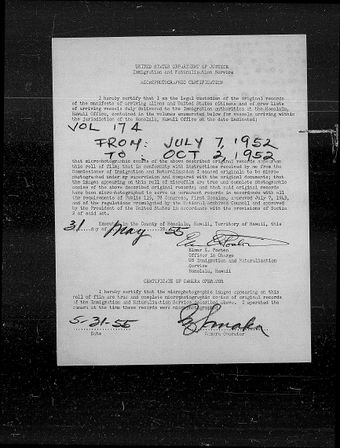 UNITED STATES DEPARTMENT OF JUSTICE
Immigration and Naturalization Service
MICROPHOTOGRAPHIC CERTIFICATION
I hereby certify that I am the legal custodian of the original records
of the manifests of arriving aliens and United States citizens and of crew lists
of arriving vessels duly delivered to the Immigration authorities at the Honolulu,
Hawaii Office, contained in the volume enumerated below for vessels arriving within
the jurisdiction of the Honolulu, Hawaii Office on the date indicated:
VOL 174
FROM: JULY 7, 1952
TO: OCT 2, 1952
that microphotographic copies of the above described original records appear on
this roll of film; that in conformity with instructions received by me from the
Commissioner of Immigration and Naturalization I caused originals to be micro-
photographed under my supervision and compared with the original documents; that
the images appearing on this roll of film are true and complete photographic
copies of the above described original records; and that said original records
have been microphotographed to serve as permanent records in accordance with all
the requirements of Public 129, 79 Congress, First Session, approved July 7, 1945,
and of the regulations promulgated by the National Archives Council and approved
by the President of the United States in accordance with the provisions of Section
3 of said act.
Executed in the County of Honolulu, Territory of Hawaii, this
31 day of May 1955
Officer in Charge
US Immigration and Naturalization
Service
Honolulu, Hawaii
CERTIFICATE OF CAMERA OPERATOR
I hereby certify that the microphotographic images appearing on this
roll of film are true and complete microphotographic copies of original records of the
Immigration and Naturalization Service described above. I operated the
camera at the time these records were microphotographed.
5-31-55
Date
Camera Operator